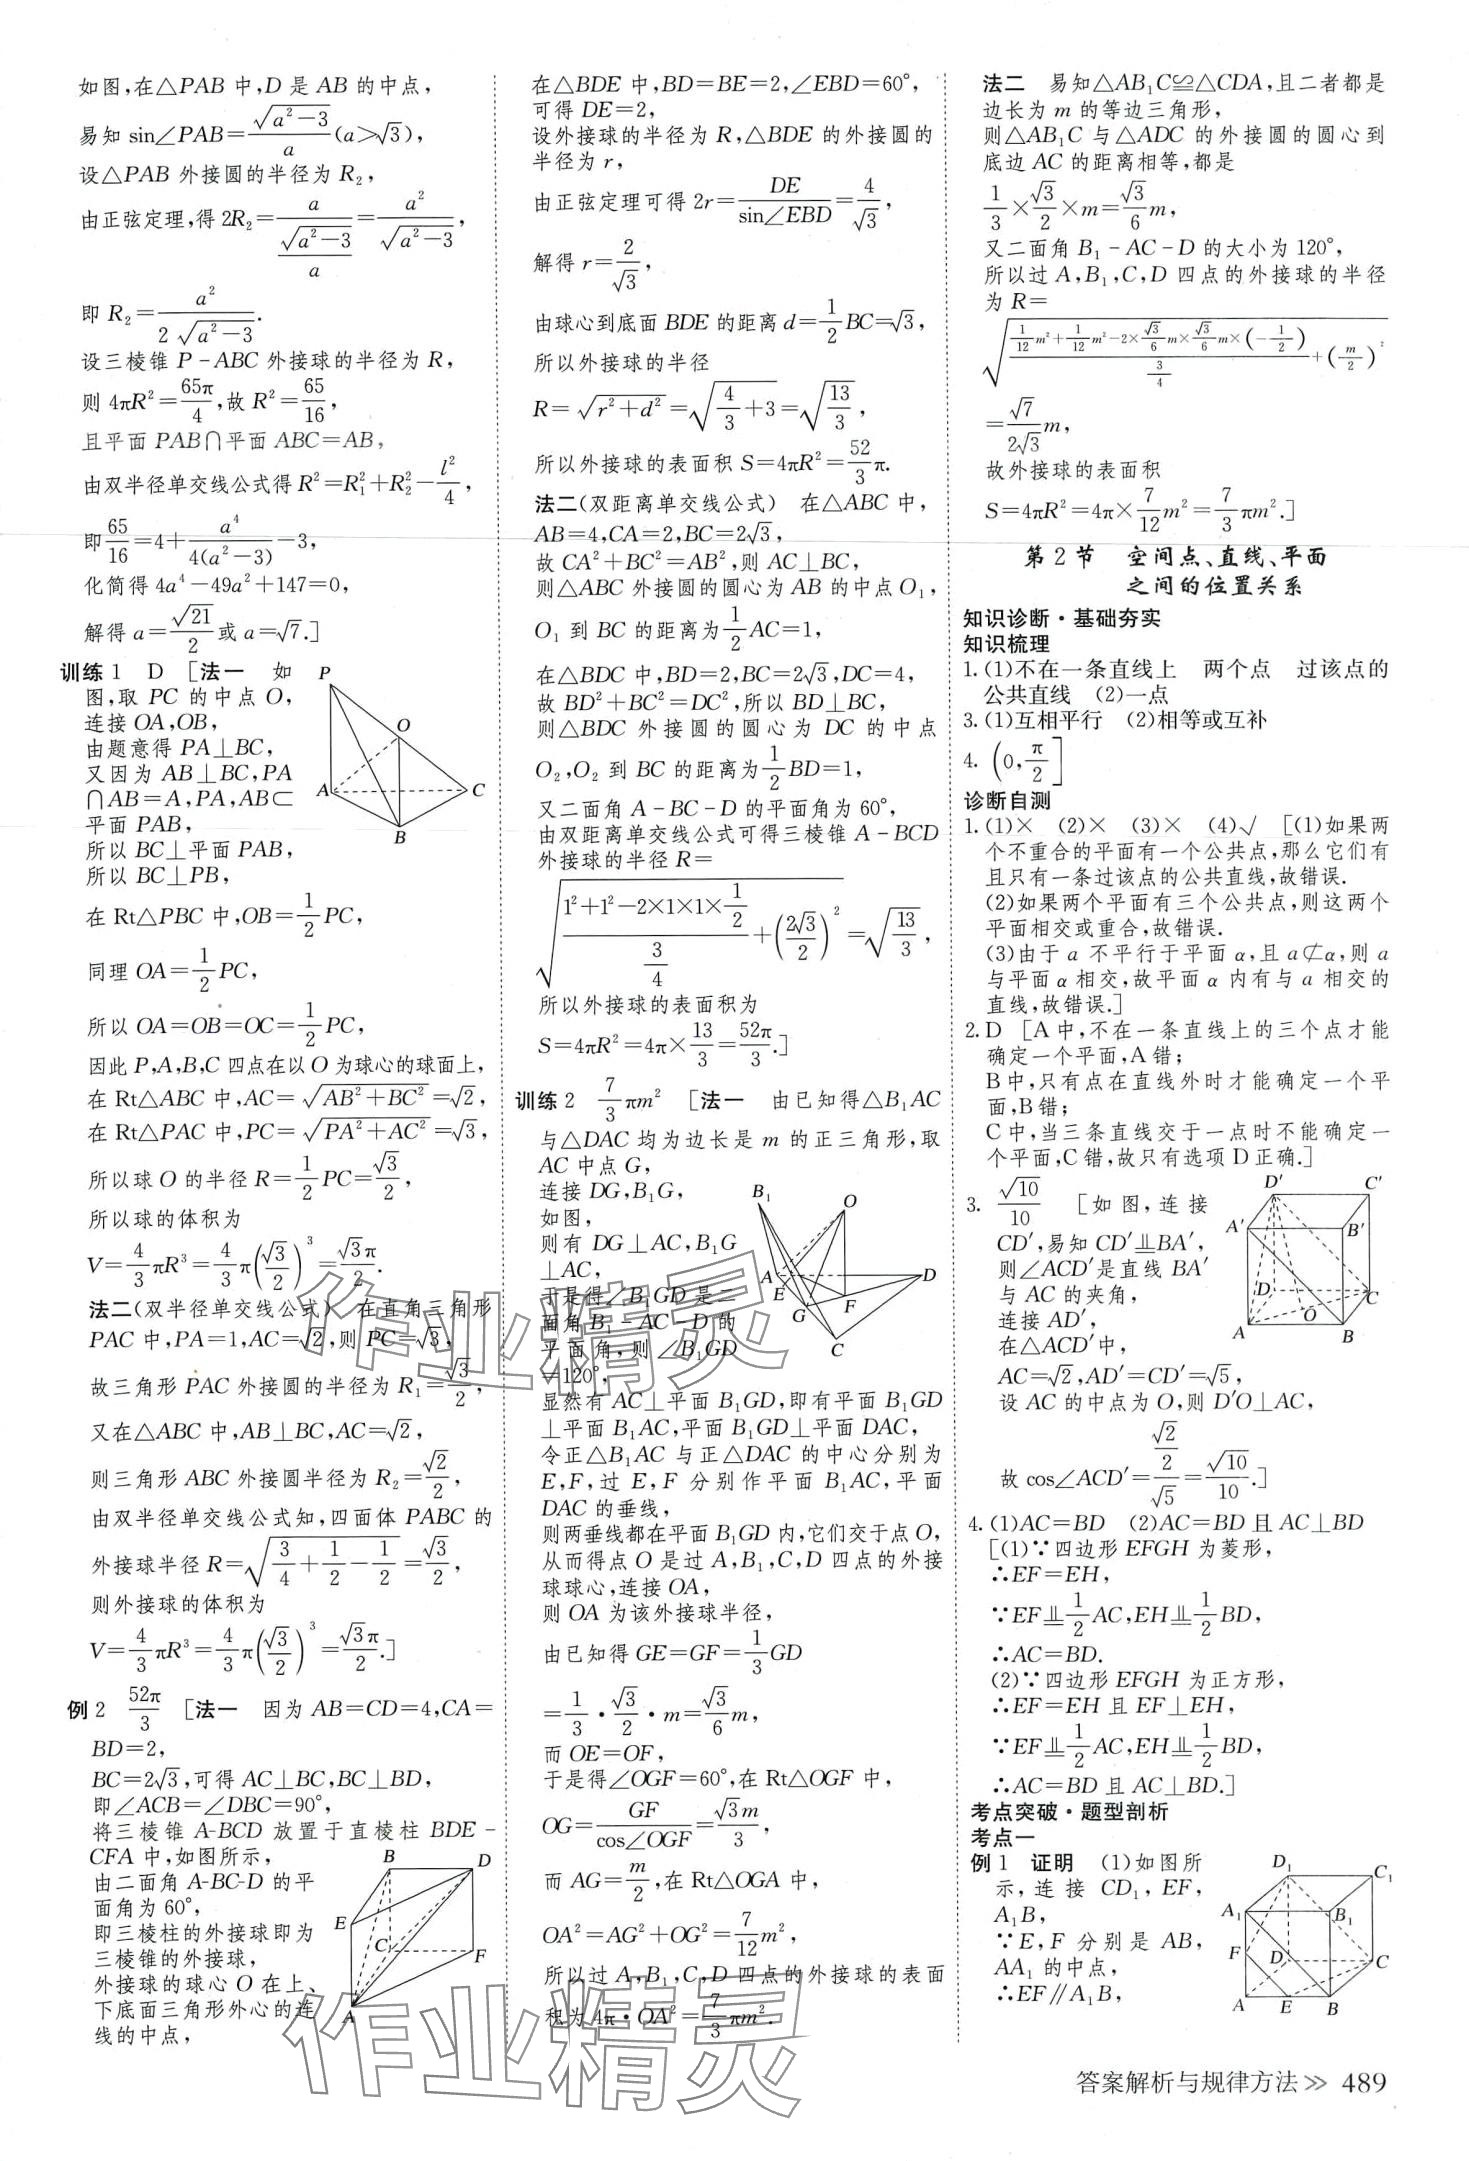 如图,在△PAB 中,D 是 AB 的中点,
易知 sin∠PAB=√(a²-3)/a(a>√3),
设△PAB 外接圆的半径为 R₂,
由正弦定理,得 2R₂=a/(√(a²-3)/a)=a²/√(a²-3),
即 R₂=a²/(2√(a²-3)).
设三棱锥 P-ABC 外接球的半径为 R,
则 4πR²=65π/4,故 R²=65/16,
且平面 PAB∩平面 ABC=AB,
由双半径单交线公式得 R²=R₁²+R₂²-l²/4,
即65/16=4+a⁴/(4(a²-3))-3,
化简得 4a⁴-49a²+147=0,
解得 a=√21/2或 a=√7.]
训练1 D [法一 如
图,取 PC 的中点 O,
连接 OA,OB,
由题意得 PA⊥BC,
又因为 AB⊥BC,PA
∩AB=A,PA,AB⊂
平面 PAB,
所以 BC⊥平面 PAB,
所以 BC⊥PB,
P
O
A
C
B
在 Rt△PBC 中,OB=1/2PC,
同理 OA=1/2PC,
所以 OA=OB=OC=1/2PC,
因此 P,A,B,C 四点在以 O 为球心的球面上,
在 Rt△ABC 中,AC=√(AB²+BC²)=√2,
在 Rt△PAC 中,PC=√(PA²+AC²)=√3,
所以球 O 的半径 R=1/2PC=√3/2,
所以球的体积为
V=4/3πR³=4/3π(√3/2)³=√3π/2.
法二(双半径单交线公式) 在直角三角形
PAC 中,PA=1,AC=√2,则 PC=√3,
故三角形 PAC 外接圆的半径为 R₁=√3/2,
又在△ABC 中,AB⊥BC,AC=√2,
则三角形 ABC 外接圆半径为 R₂=√2/2,
由双半径单交线公式知,四面体 PABC 的
外接球半径 R=√(3/4+1/2-1/2)=√3/2,
则外接球的体积为
V=4/3πR³=4/3π(√3/2)³=√3π/2.]
例2 52π/3 [法一 因为 AB=CD=4,CA=
BD=2,
BC=2√3,可得 AC⊥BC,BC⊥BD,
即∠ACB=∠DBC=90°,
将三棱锥 A-BCD 放置于直棱柱 BDE-
CFA 中,如图所示,
由二面角 A-BC-D 的平
面角为 60°,
即三棱柱的外接球即为
三棱锥的外接球,
外接球的球心 O 在上、
下底面三角形外心的连
线的中点,
B
D
E
C
F
A
在△BDE 中,BD=BE=2,∠EBD=60°,
可得 DE=2,
设外接球的半径为 R,△BDE 的外接圆的
半径为 r,
由正弦定理可得 2r=DE/sin∠EBD=4/√3,
解得 r=2/√3,
由球心到底面 BDE 的距离 d=1/2BC=√3,
所以外接球的半径
R=√(r²+d²)=√(4/3+3)=√(13/3),
所以外接球的表面积 S=4πR²=52/3π.
法二(双距离单交线公式) 在△ABC 中,
AB=4,CA=2,BC=2√3,
故 CA²+BC²=AB²,则 AC⊥BC,
则△ABC 外接圆的圆心为 AB 的中点 O₁,
O₁ 到 BC 的距离为1/2AC=1,
在△BDC 中,BD=2,BC=2√3,DC=4,
故 BD²+BC²=DC²,所以 BD⊥BC,
则△BDC 外接圆的圆心为 DC 的中点
O₂,O₂ 到 BC 的距离为1/2BD=1,
又二面角 A-BC-D 的平面角为 60°,
由双距离单交线公式可得三棱锥 A-BCD
外接球的半径 R=
√((1²+1²-2×1×1×1/2)/(3/4)+(2√3/2)²)=√(13/3),
所以外接球的表面积为
S=4πR²=4π×13/3=52π/3.]
训练2 7/3πm² [法一 由已知得△B₁AC
与△DAC 均为边长是 m 的正三角形,取
AC 中点 G,
连接 DG,B₁G,
如图,
则有 DG⊥AC,B₁G
⊥AC,
于是得∠B₁GD 是二
面角 B₁-AC-D 的
平面角,则∠B₁GD
=120°,
B₁
O
A
E
G
F
D
C
显然有 AC⊥平面 B₁GD,即有平面 B₁GD
⊥平面 B₁AC,平面 B₁GD⊥平面 DAC,
令正△B₁AC 与正△DAC 的中心分别为
E,F,过 E,F 分别作平面 B₁AC,平面
DAC 的垂线,
则两垂线都在平面 B₁GD 内,它们交于点 O,
从而得点 O 是过 A,B₁,C,D 四点的外接
球球心,连接 OA,
则 OA 为该外接球半径,
由已知得 GE=GF=1/3GD
=1/3·√3/2·m=√3/6m,
而 OE=OF,
于是得∠OGF=60°,在 Rt△OGF 中,
OG=GF/cos∠OGF=√3m/3,
而 AG=m/2,在 Rt△OGA 中,
OA²=AG²+OG²=7/12m²,
所以过 A,B₁,C,D 四点的外接球的表面
积为 4π·OA²=7/3πm².
法二 易知△AB₁C≌△CDA,且二者都是
边长为 m 的等边三角形,
则△AB₁C 与△ADC 的外接圆的圆心到
底边 AC 的距离相等,都是
1/3×√3/2×m=√3/6m,
又二面角 B₁-AC-D 的大小为 120°,
所以过 A,B₁,C,D 四点的外接球的半径
为 R=
√((1/12m²+1/12m²-2×√3/6m×√3/6m×(-1/2))/(3/4)+(m/2)²)
=√7/(2√3)m,
故外接球的表面积
S=4πR²=4π×7/12m²=7/3πm².]
第2节 空间点、直线、平面
之间的位置关系
知识诊断·基础夯实
知识梳理
1.(1)不在一条直线上 两个点 过该点的
公共直线 (2)一点
3.(1)互相平行 (2)相等或互补
4.(0,π/2]
诊断自测
1.(1)× (2)× (3)× (4)√ [(1)如果两
个不重合的平面有一个公共点,那么它们有
且只有一条过该点的公共直线,故错误.
(2)如果两个平面有三个公共点,则这两个
平面相交或重合,故错误.
(3)由于 a 不平行于平面 α,且 a⊄α,则 a
与平面 α 相交,故平面 α 内有与 a 相交的
直线,故错误.]
2.D [A中,不在一条直线上的三个点才能
确定一个平面,A错;
B中,只有点在直线外时才能确定一个平
面,B错;
C中,当三条直线交于一点时不能确定一
个平面,C错,故只有选项D正确.]
3. √10/10 [如图,连接
CD′,易知 CD′⥮BA′,
则∠ACD′是直线 BA′
与 AC 的夹角,
连接 AD′,
在△ACD′中,
D′
C′
A′
B′
D
C
O
A
B
AC=√2,AD′=CD′=√5,
设 AC 的中点为 O,则 D′O⊥AC,
故 cos∠ACD′=(√2/2)/√5=√10/10.]
4.(1)AC=BD (2)AC=BD 且 AC⊥BD
[(1)∵四边形 EFGH 为菱形,
∴EF=EH,
∵EF⥮1/2AC,EH⥮1/2BD,
∴AC=BD.
(2)∵四边形 EFGH 为正方形,
∴EF=EH 且 EF⊥EH,
∵EF⥮1/2AC,EH⥮1/2BD,
∴AC=BD 且 AC⊥BD.]
考点突破·题型剖析
考点一
例1 证明 (1)如图所
示,连接 CD₁,EF,
A₁B,
∵E,F 分别是 AB,
AA₁ 的中点,
∴EF∥A₁B,
D₁
C₁
A₁
B₁
F
D
C
A
E
B
作业精灵
作业精灵
答案解析与规律方法>> 489